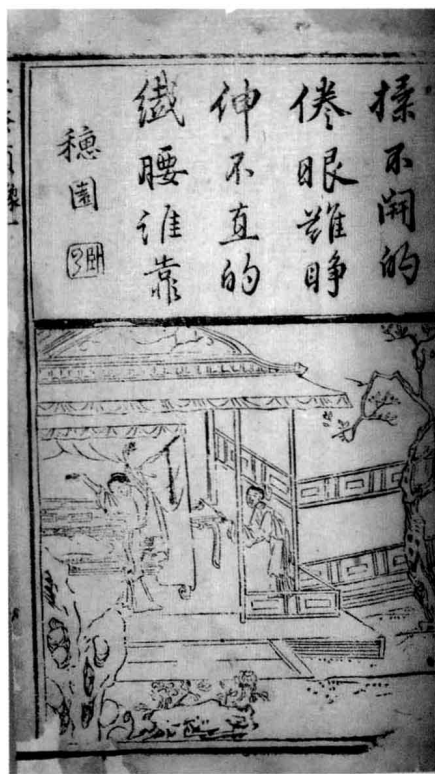 揉不開的
倦眼難睁
伸不直的
纖腰誰靠
穗園